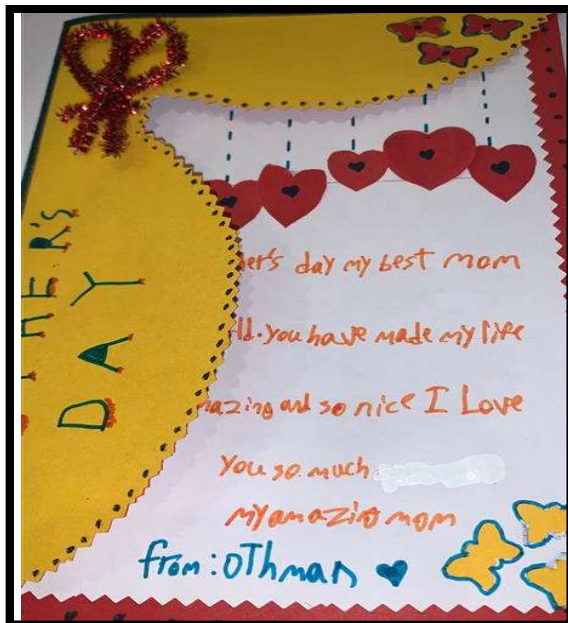 HER'S
DAY
her's day my best mom
ld. you have made my life
mazing and so nice I Love
You so much
my amazing mom
from: oThman